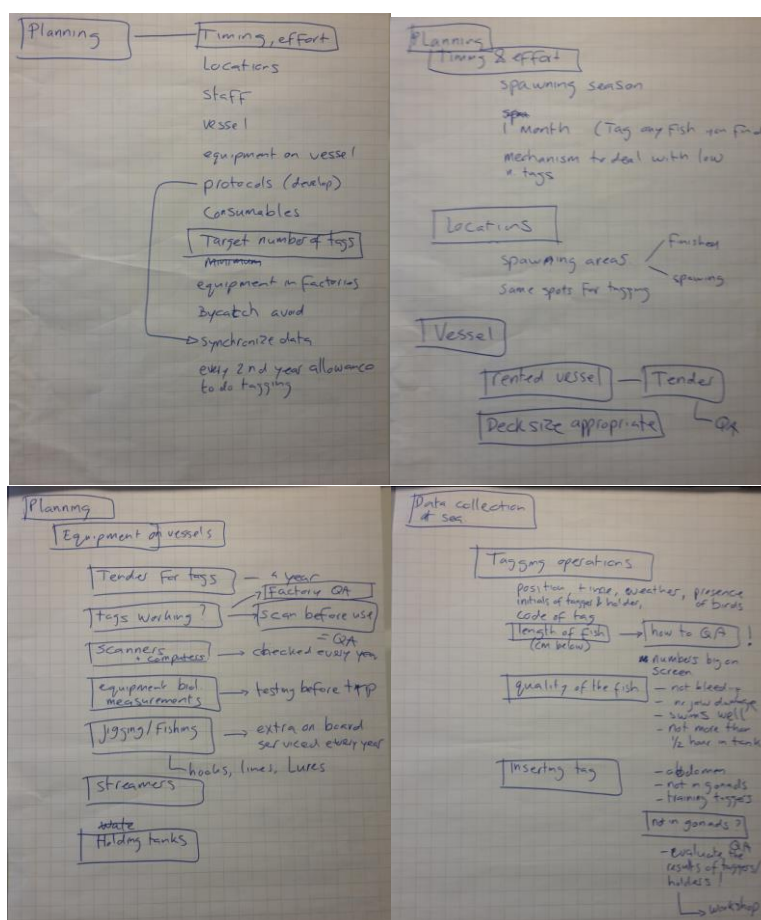 Planning
Timing, effort
Locations
staff
vessel
equipment on vessel
protocols (develop)
Consumables
Target number of tags
minimum
equipment in factories
Bycatch avoid
synchronize data
every 2nd year allowance
to do tagging
Planning
Timing & effort
spawning season
spa
1 month (Tag any fish you find
mechanism to deal with low
n. tags
Locations
spawning areas
finished
spawning
same spots for tagging
Vessel
rented vessel
Tender
QA
Deck size appropriate
Planning
Equipment on vessels
Tender for tags
year
tags working?
Factory QA
scan before use
= QA
scanners
+ computers
checked every year
equipment biol
measurements
testing before trip
Jigging/Fishing
extra on board
serviced every year
hooks, lines, Lures
streamers
Holding tanks
Data collection
at sea
Tagging operations
position time, weather, presence
of birds
initials of tagger & holder,
code of tag
length of fish
(cm below)
how to QA !
numbers big on
screen
quality of the fish
- not bleeding
- no jaw damage
- swims well
- not more than
1/2 hour in tank
Inserting tag
- abdomen
- not in gonads
- training taggers
not in gonads?
QA
- evaluate the
results of taggers/
holders!
workshop